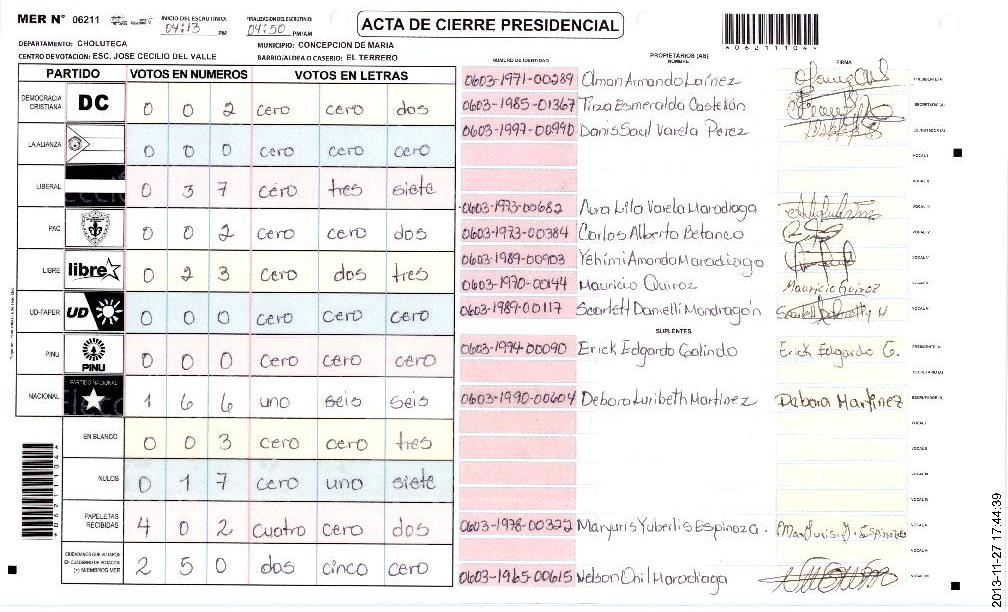 MER N° 06211
INICIO DEL ESCRUTINIO: 04:13 PM
FINALIZACION DEL ESCRUTINIO: 04:50 PM/AM
ACTA DE CIERRE PRESIDENCIAL
DEPARTAMENTO: CHOLUTECA
MUNICIPIO: CONCEPCION DE MARIA
CENTRO DE VOTACION: ESC. JOSE CECILIO DEL VALLE
BARRIO/ALDEA O CASERIO: EL TERRERO
PARTIDO VOTOS EN NUMEROS VOTOS EN LETRAS
DEMOCRACIA CRISTIANA DC 0 0 2 cero cero dos
LA ALIANZA 0 0 0 cero cero cero
LIBERAL 0 3 7 cero tres siete
PAC 0 0 2 cero cero dos
LIBRE libre 0 2 3 cero dos tres
UD-FAPER UD 0 0 0 cero cero cero
PINU PINU 0 0 0 cero cero cero
NACIONAL PARTIDO NACIONAL 1 6 6 uno seis seis
EN BLANCO 0 0 3 cero cero tres
NULOS 0 1 7 cero uno siete
PAPELETAS RECIBIDAS 4 0 2 cuatro cero dos
CIUDADANOS QUE VOTARON EN CUADERNO DE VOTACION (+) MIEMBROS MER 2 5 0 dos cinco cero
PROPIETARIOS (AS)
NUMERO DE IDENTIDAD NOMBRE FIRMA
0603-1971-00289 Olman Armando Laínez PRESIDENTE (A)
0603-1985-01367 Tirza Esmeralda Castelón SECRETARIO (A)
0603-1997-00990 Danis Saul Varela Perez ESCRUTADOR (A)
VOCAL I
VOCAL II
0603-1973-00682 Aura Lila Varela Maradiaga VOCAL III
0603-1973-00384 Carlos Alberto Betanco VOCAL IV
0603-1989-00903 Yehimi Amanda Maradiaga VOCAL V
0603-1970-00144 Mauricio Quiroz Mauricio Quiroz
0603-1989-00117 Scarlett Danielli Mondragón
SUPLENTES
0603-1994-00090 Erick Edgardo Galindo Erick Edgardo G. PRESIDENTE (A)
SECRETARIO (A)
0603-1990-00604 Debora Luribeth Martínez Debora Martínez ESCRUTADOR (A)
VOCAL I
VOCAL II
0603-1978-00322 Maryuris Yuberlis Espinoza.
0603-1965-00615 Nelson Onil Maradiaga
4062111044
2013-11-27 17:44:39